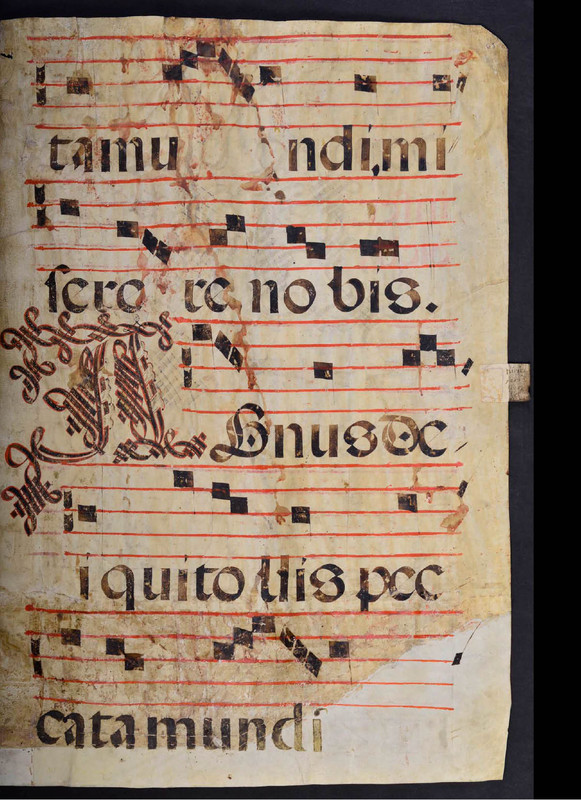 tamu ndi,mi
sere re no bis.
AGnus De
i qui to llis pec
cata mundi